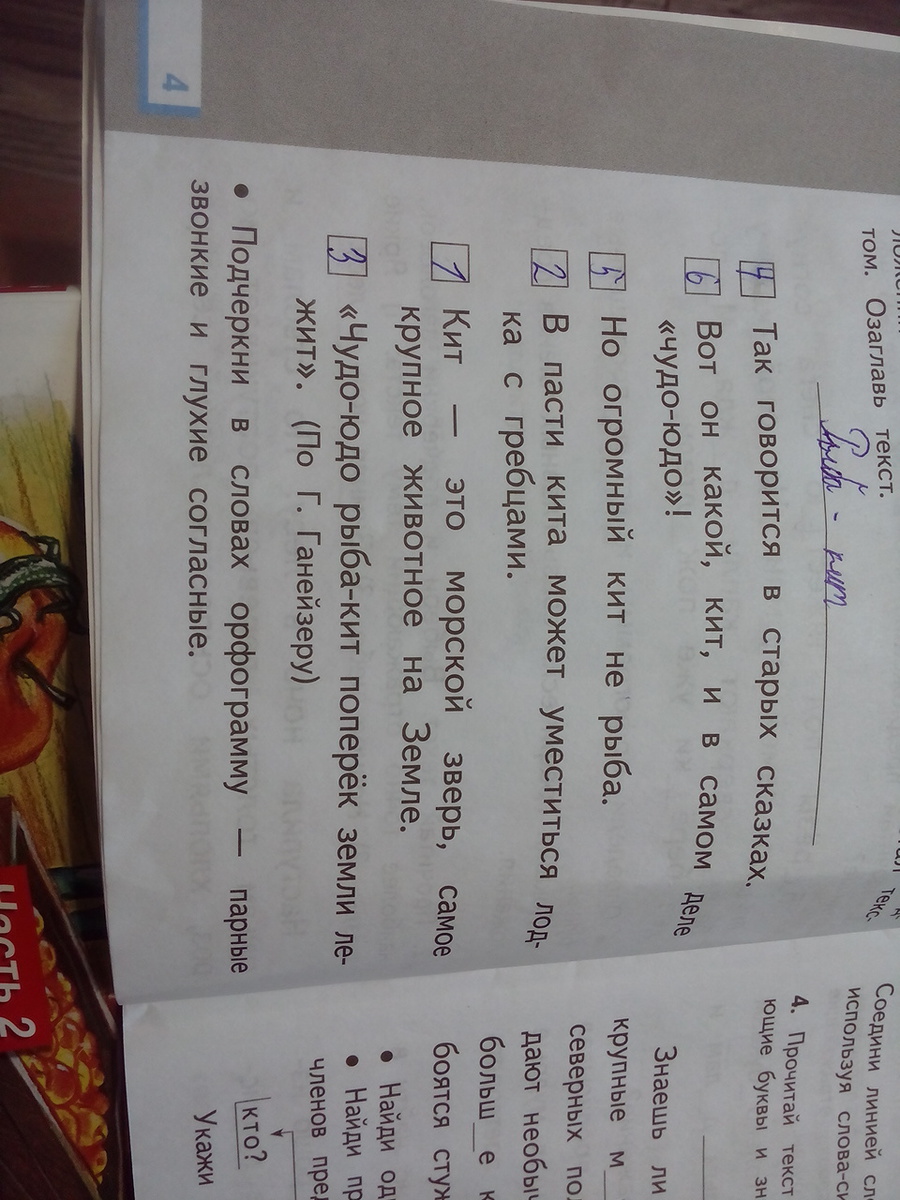 том. Озаглавь текст.
кит
4 Так говорится в старых сказках.
6 Вот он какой, кит, и в самом деле
«чудо-юдо»!
5 Но огромный кит не рыба.
2 В пасти кита может уместиться лод-
ка с гребцами.
1 Кит — это морской зверь, самое
крупное животное на Земле.
3 «Чудо-юдо рыба-кит поперёк земли ле-
жит». (По Г. Ганейзеру)
• Подчеркни в словах орфограмму — парные
звонкие и глухие согласные.
4
Соедини линией
используя
4. Прочитай текст
ющие буквы и
Знаешь ли
крупные м
северных
дают
больш_е
боятся
• Найди
• Найди
членов
кто?
Укажи
Часть 2